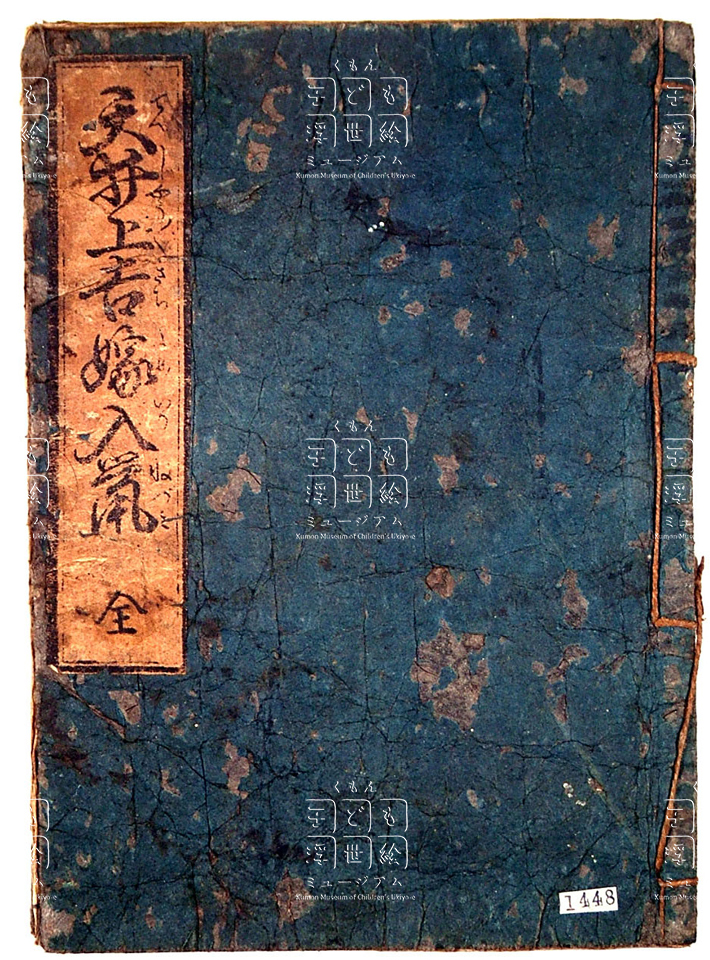 天井上吉嫁入鼠 全
てんしやううときち よめいり ねづみ
くもん
子ども
浮世絵
ミュージアム
Kumon Museum of Children's Ukiyo-e
くもん
子ども
浮世絵
ミュージアム
Kumon Museum of Children's Ukiyo-e
くもん
子ども
浮世絵
ミュージアム
Kumon Museum of Children's Ukiyo-e
1448